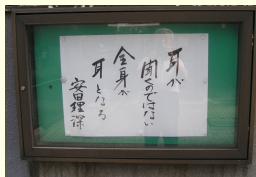 耳が
聞くのではない
全身が
耳となる
安田理深